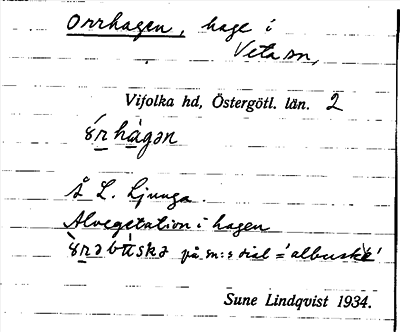 Orrhagen, hage i
Veta sn,
Vifolka hd, Östergötl. län. 2
å L. Ljunga.
Alvegetation i hagen
på sn:s dial = 'albuske'
Sune Lindqvist 1934.